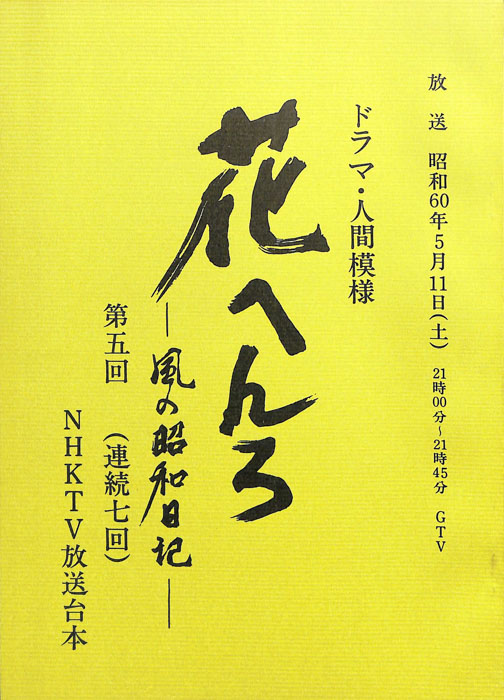 放送 昭和60年5月11日(土) 21時00分~21時45分 GTV
ドラマ・人間模様
花へんろ
―風の昭和日記―
第五回 (連続七回)
NHKTV放送台本